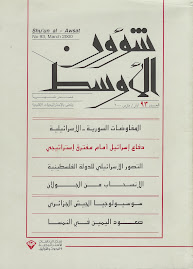 Shu'un al - Awsat
No 93, March 2000
شؤون
الأوسط
العدد ٩٣
المفاوضات السورية - الإسرائيلية
دفاع إسرائيل أمام مفترق إستراتيجي
التصور الإسرائيلي للدولة الفلسطينية
الانسحاب من الجولان
سوسيولوجيا الجيش الجزائري
صعود اليمين في النمسا